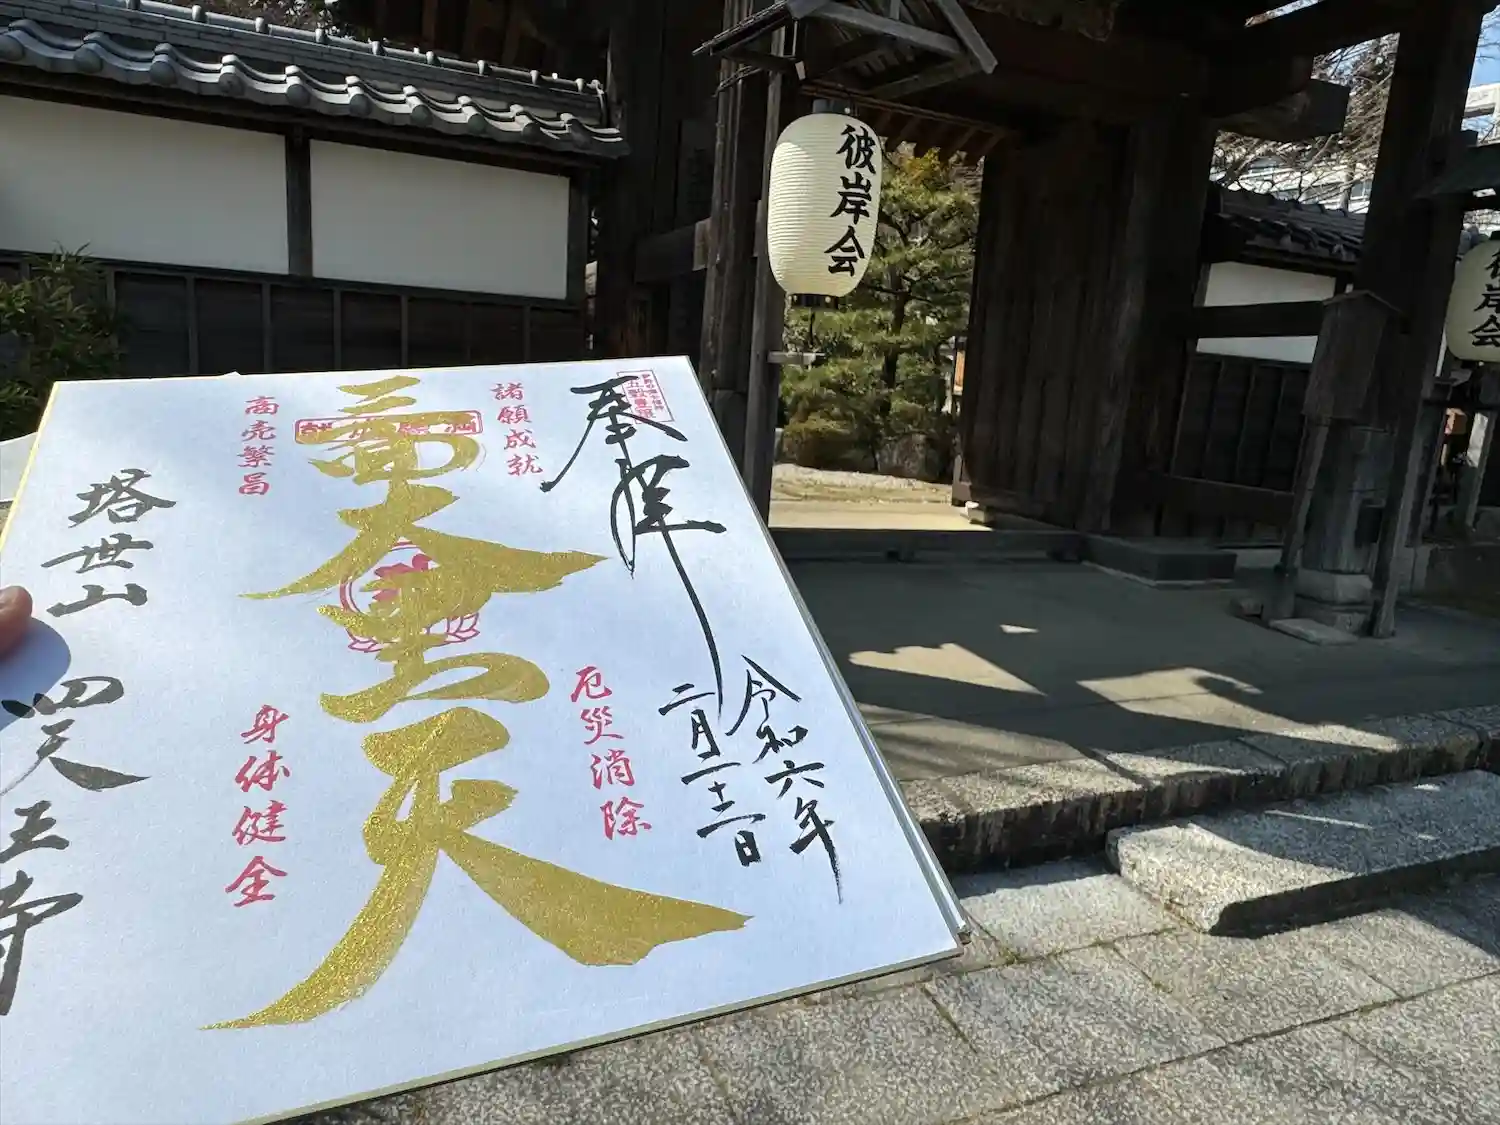 彼岸会
彼岸会
奉拝
令和六年
二月二十三日
諸願成就
厄災消除
三面大黒天
商売繁昌
身体健全
塔世山
四天王寺